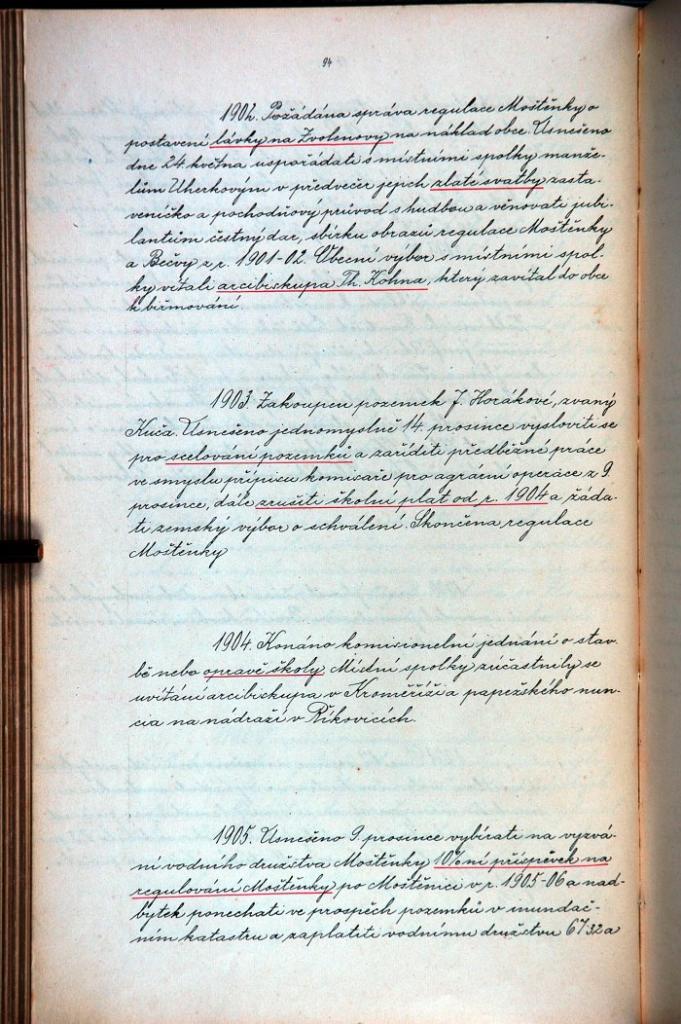 94
1902. Požádána správa regulace Moštěnky o
postavení lávky na Zvolenovy na náklad obce. Usnešeno
dne 24. května uspořádati s místními spolky manže-
lům Uherkovým v předvečer jejich zlaté svatby zasta-
veníčko a pochodňový průvod s hudbou a věnovati jubi-
lantům čestný dar, sbírku obrazů regulace Moštěnky
a Bečvy z r. 1901-02. Obecní výbor s místními spol-
ky vítali arcibiskupa Th. Kohna, který zavítal do obce
k biřmování.
1903. Zakoupen pozemek J. Horákové, zvaný
Kuča. Usnešeno jednomyslně 14. prosince vysloviti se
pro scelování pozemků a zaříditi předběžné práce
ve smyslu přípisu komisaře pro agrární operace z 9.
prosince, dále zrušiti školní plat od r. 1904 a žáda-
ti zemský výbor o schválení. Skončena regulace
Moštěnky
1904. Konáno komisionelní jednání o stav-
bě nebo opravě školy. Místní spolky zúčastnily se
uvítání arcibiskupa v Kroměříži a papežského nun-
cia na nádraží v Říkovicích.
1905. Usnešeno 9. prosince vybírati na vyzvá-
ní vodního družstva Moštěnky 10%ní příspěvek na
regulování Moštěnky po Moštěnici v r. 1905-06 a nad-
bytek ponechati ve prospěch pozemků v inundač-
ním katastru a zaplatiti vodnímu družstvu 67